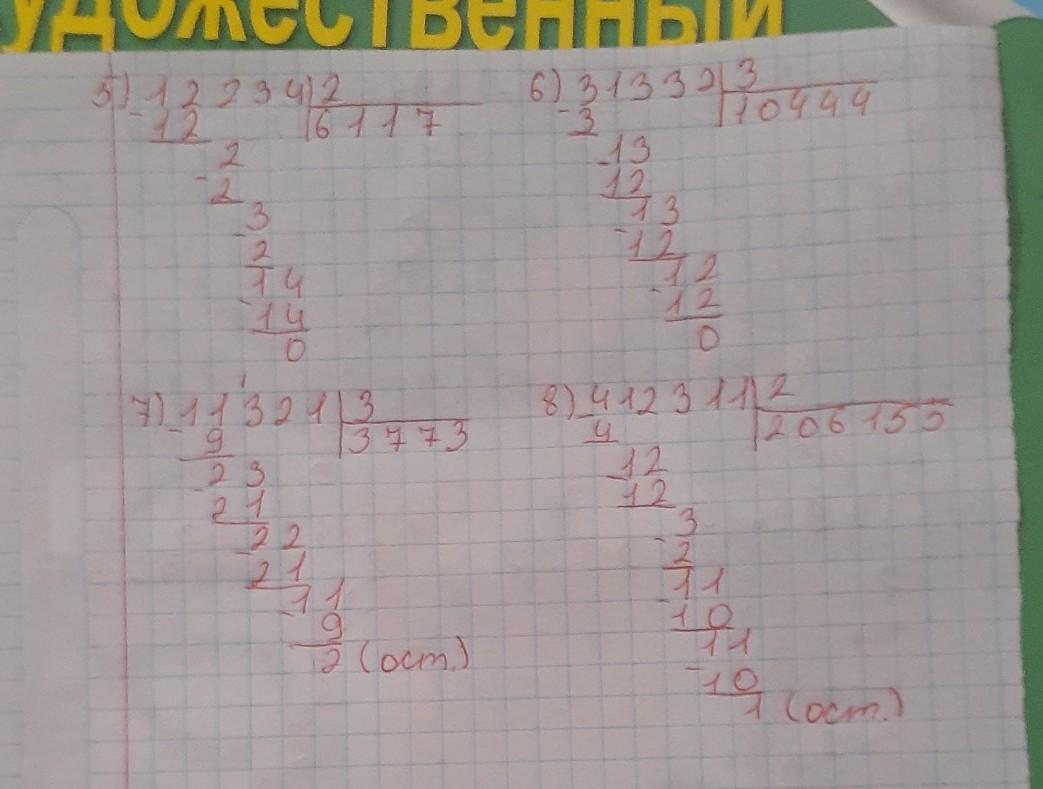 удожественный
5) 12234 | 2
- 12 | 6117
2
- 2
- 3
2
14
- 14
0
6) 31332 | 3
- 3 | 10444
- 13
12
13
- 12
12
- 12
0
7) 11321 | 3
- 9 | 3773
- 23
21
- 22
21
- 11
9
2 (ост.)
8) 412311 | 2
- 4 | 206155
- 12
12
- 3
2
- 11
10
11
- 10
1 (ост.)